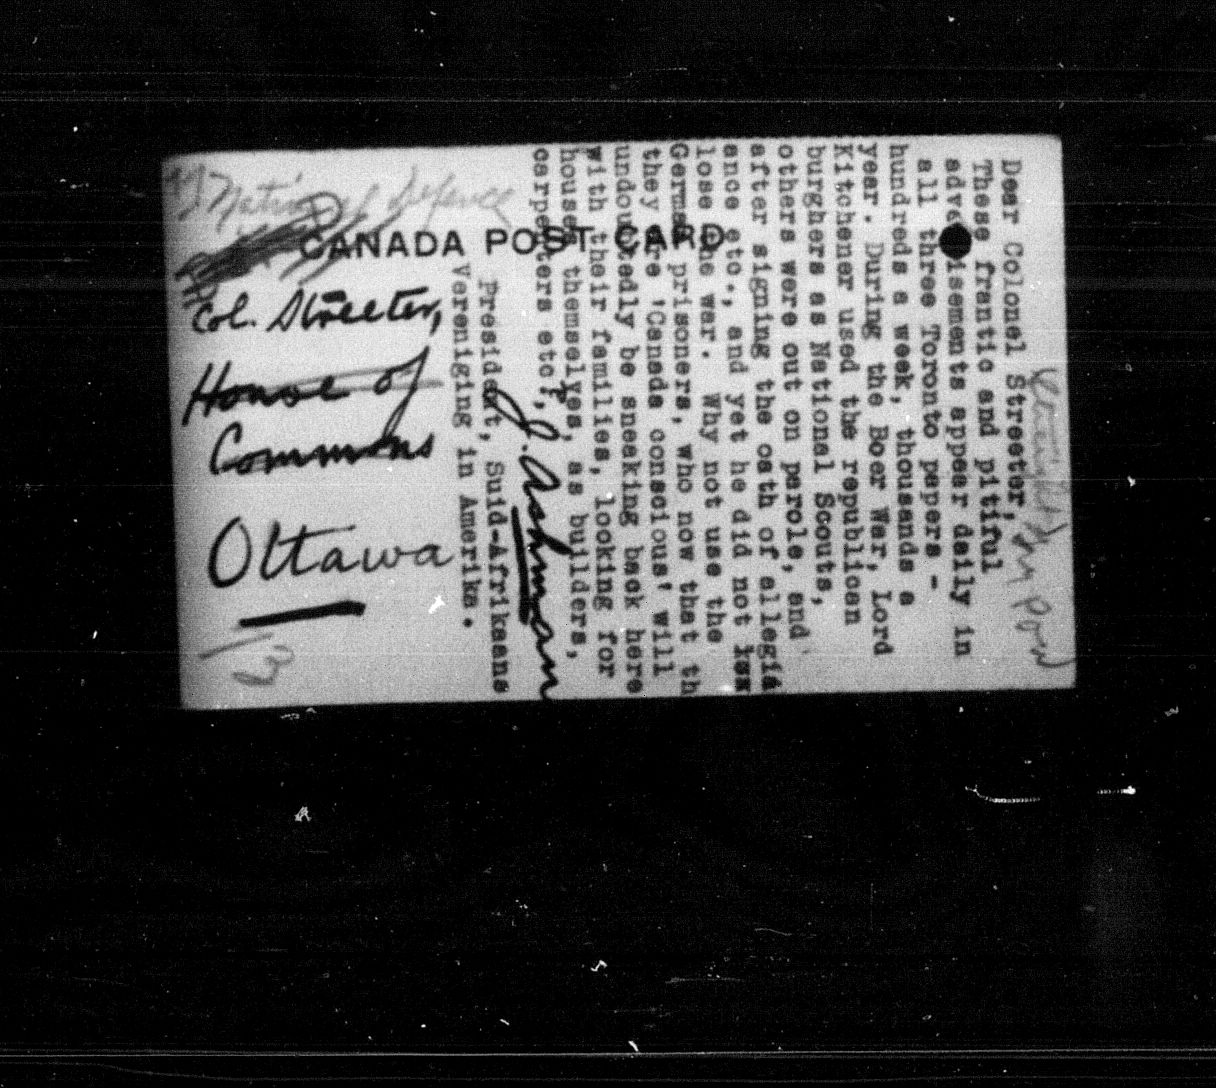 National Defence
CANADA POST CARD
Col. Streeter,
House of
Commons
Ottawa
Dear Colonel Streeter,
These frantic and pitiful
adve isements appear daily in
all three Toronto papers -
hundreds a week, thousands a
year. During the Boer War, Lord
Kitchener used the republican
burghers as National Scouts,
others were out on parole, and
after signing the oath of allegia
ance etc., and yet he did not
lose the war. Why not use the
German prisoners, who now that th
they are 'Canada conscious' will
undoubtedly be sneaking back here
with their families, looking for
houses themselves, as builders,
carpenters etc?,
J. Ashman
President, Suid-Afrikaans
Vereniging in Amerika.